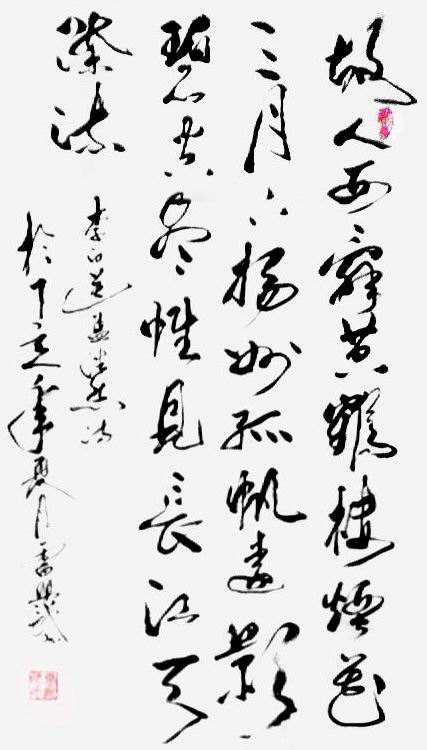 故人西辭黃鶴樓煙花
三月下揚州孤帆遠影
碧空盡惟見長江天
際流
李白送孟浩然詩
於丁亥年夏月雷